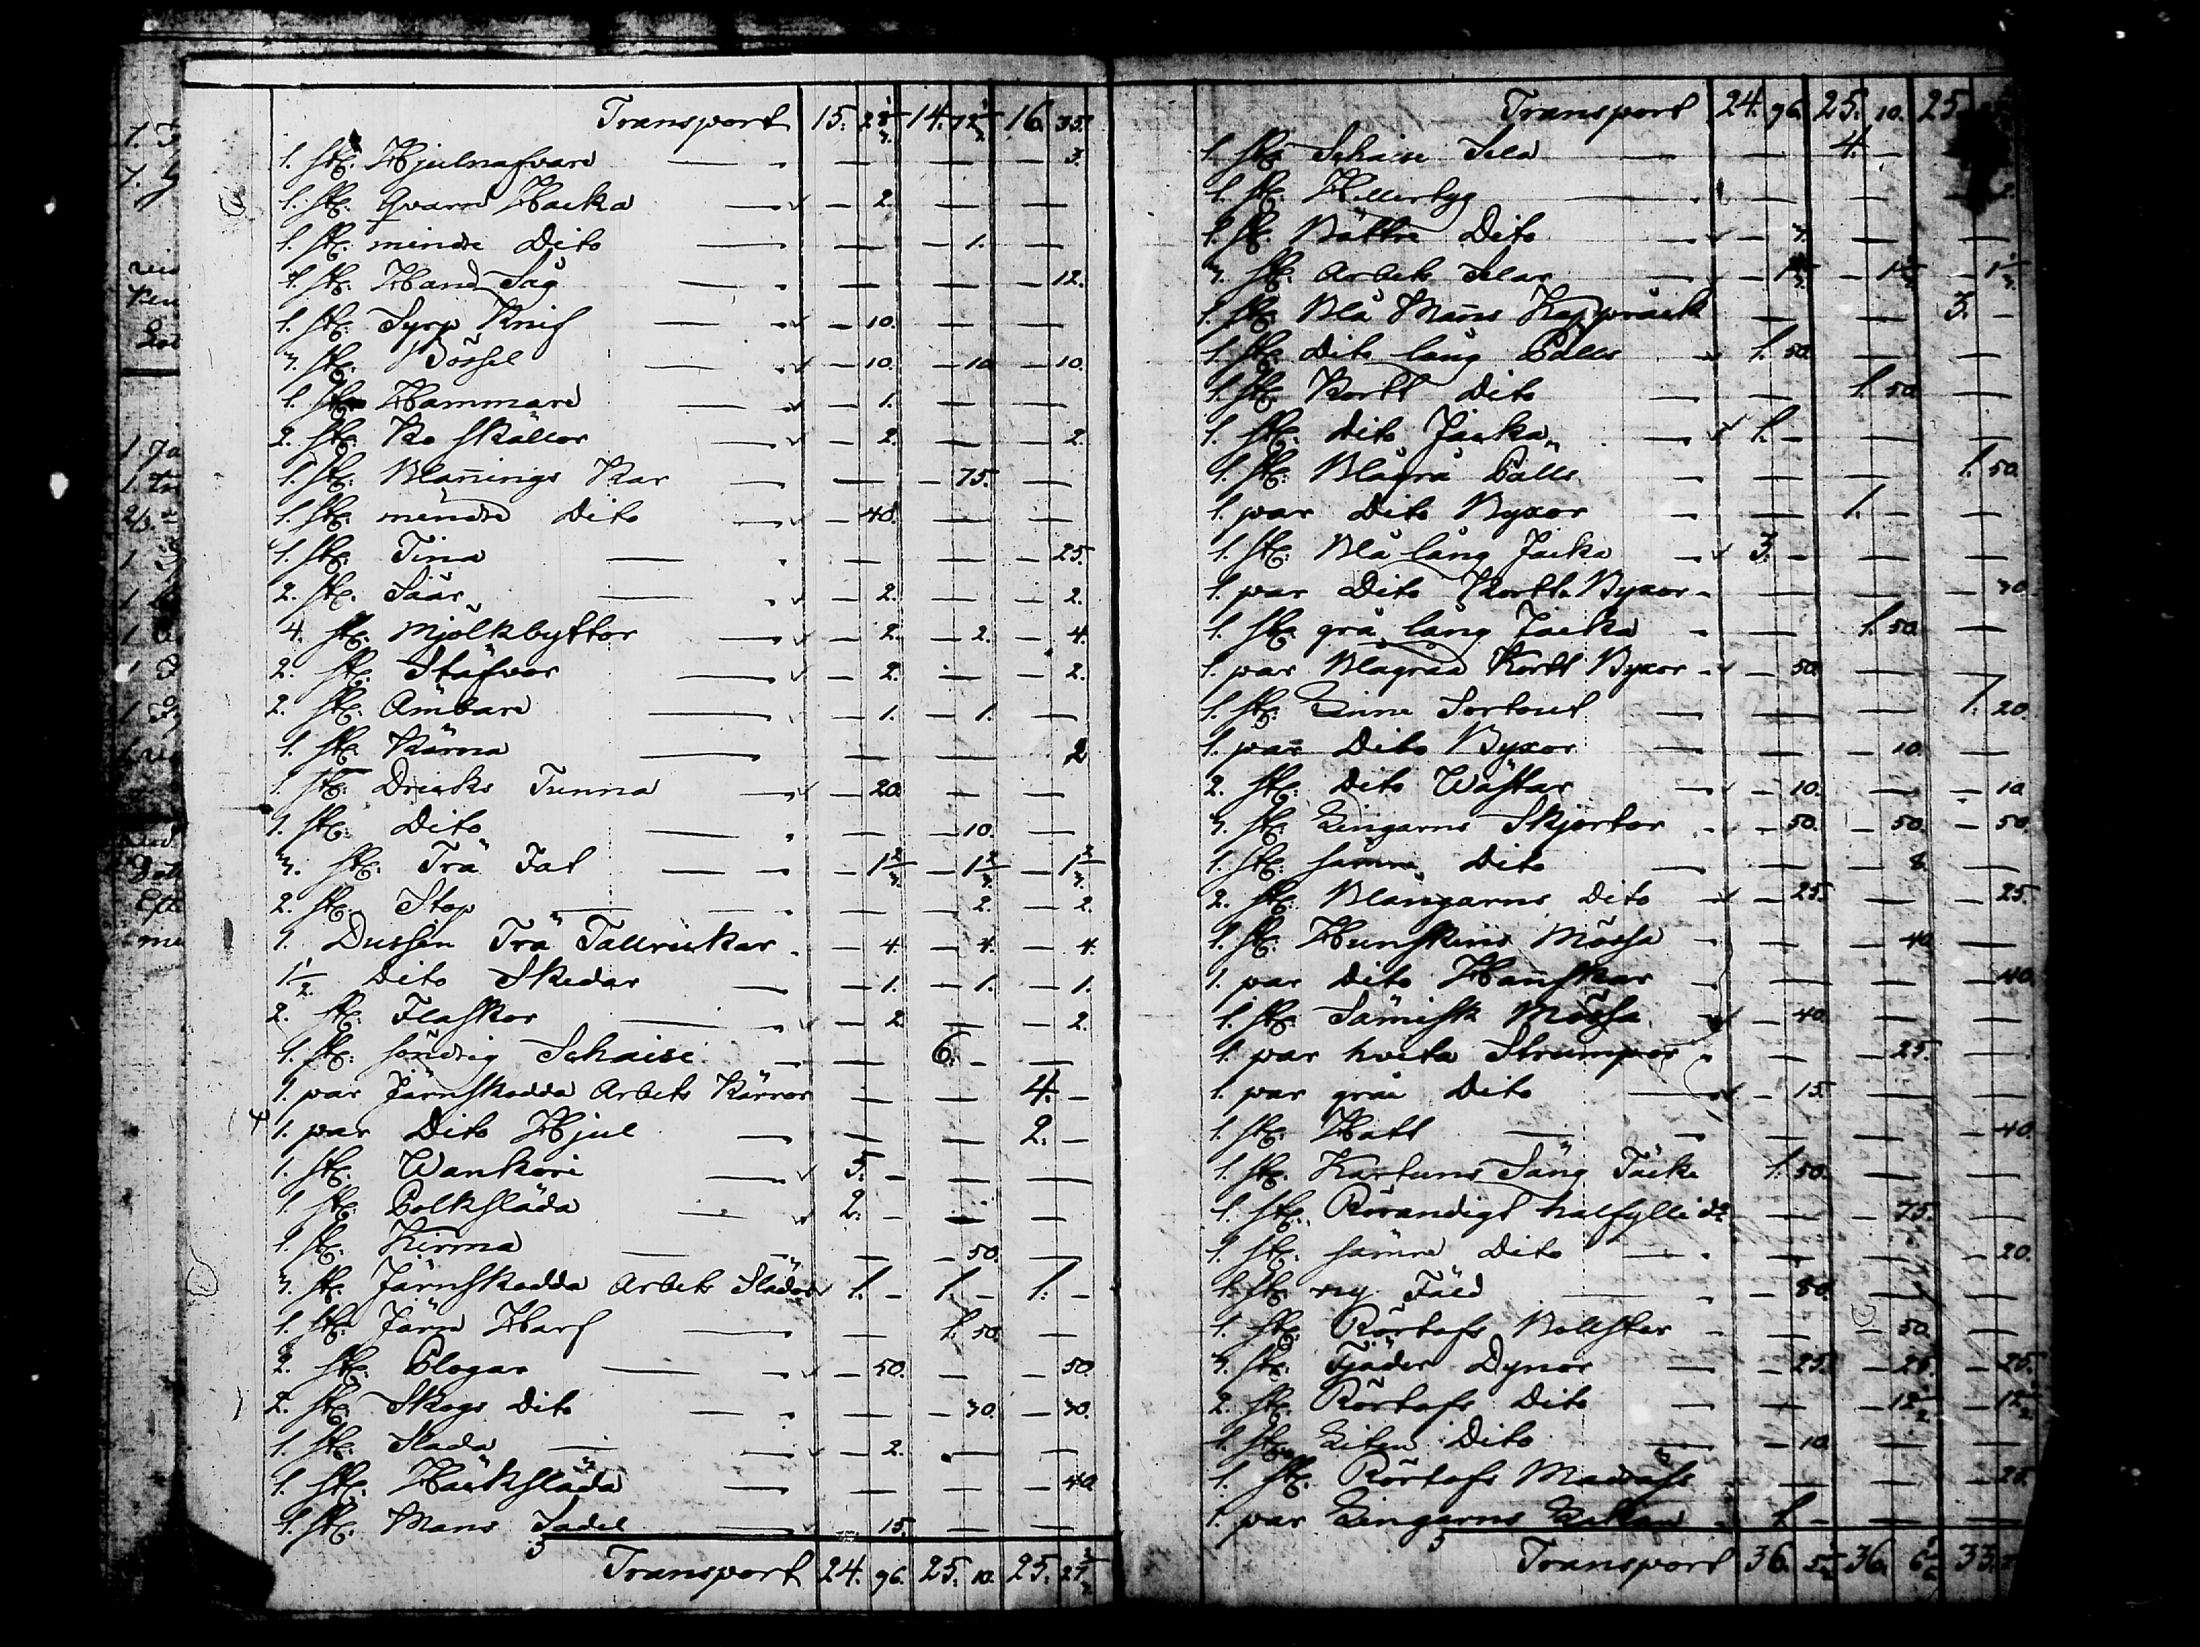 Transport 15. 14. 16.
1. st. Hjulnafvare — — — 3.
1. st. Qvarn Hacka — 2. — —
1. st. mindre Dito — — 1. —
1. st. Hand Såg — — — 12.
1. st. Syrp Knif — 10. — —
3. st. Bössel — 10. — 10. — 10.
1. st. Hammare — 1. — —
2. st. Ko skällor — 2. — 2.
1. st. Blanings Kar — — 75. —
1. st. mindre Dito — 48. — —
1. st. Tina — — — 25.
2. st. Såar — 2. — — 2.
4. st. Mjölkbyttor — 2. — 2. — 4.
2. st. Stäfvor — 2. — — 2.
2. st. Ämbare — 1. — 1. —
1. st. Kärna — — — 2
1. st. Dricks Tunna — 20. — —
1. st. Dito — — 10. —
3. st. Trä Fat — 1 2/3. — 1 2/3. — 1 2/3.
2. st. Stop — — 2. — 2.
1. Dussin Trä Tallrickar — 4. — 4. — 4.
1 1/2. Dito Skedar — 1. — 1. — 1.
2. st. Flaskor — 2. — — 2.
1. st. söndrig Schaise — 6. — —
1. par Järnskodda Arbets Kärror — — 4. —
1. par Dito Hjul — — 2. —
1. st. Wankori 5. — — —
1. st. Polksläda 2. — — —
1. st. Kirma — — 50. —
3. st. Järnskodda Arbets Slädor 1. — 1. — 1. —
1. st. Järn Harf — 1. 50. —
2. st. Plogar — 50. — 50.
2. st. Skogs Dito — — 30. — 30.
1. st. Slada — 2. — —
1. st. Häcksläda — — — 40.
1. st. Mans Sadel — 15. — —
Transport 24. 96. 25. 10. 25.
Transport 24. 96. 25. 10. 25.
1. st. Schaise Sela — 4. —
1. st. Killertyg — —
1. st. Bättre Dito — 3. — —
3. st. Arbets Selar — 1 1/3 — 1 1/3 — 1 1/3
1. st. Blå Mans Kapprack — — 3. —
1. st. Dito lång Pälls 1. 50. — —
1. st. Kortt Dito — 1. 50. —
1. st. Dito Jacka 1. — — —
1. st. Blågrå Pälls — — 1. 50.
1. par Dito Byxor — 1. — —
1. st. Blå lång Jacka 3. — — —
1. par Dito Kortta Byxor — — — 30.
1. st. grå lång Jacka — 1. 50. —
1. par Blågråa Kortt Byxor — 50. — —
1. st. Linne Sortout — — 1. 20.
1. par Dito Byxor — — 10. —
2. st. Dito Wästar — 10. — — 10.
3. st. Lingarns Skjortor — 50. — 50. — 50.
1. st. sämre Dito — — 8. —
2. st. Blångarns Dito — 25. — 25.
1. st. Hunskins Mössa — — 40. —
1. par Dito Hanskar — — — 40.
1. st. Sämisk Mössa — 40. — —
1. par hvita Strumpor — — 25. —
1. par gråa Dito — 15. — —
1. st. Hatt — — — 40.
1. st. Kartuns Säng Täcke 1. 50. — —
1. st. Rörandigt halfylle do — — 75. —
1. st. sämre Dito — — — 20.
1. st. ny Fäld — 80. — —
1. st. Rörtafs Bollster — — 50. —
3. st. Fjäder Dynor — 25. — 25. — 25.
2. st. Rörtafs Dito — — 12 1/2 — 12 1/2
1. st. Liten Dito — 10. — —
1. st. Rörtafs Madrass — — — 25.
1. par Lingarns Lakan 1. — — —
Transport 36. 36. 33.